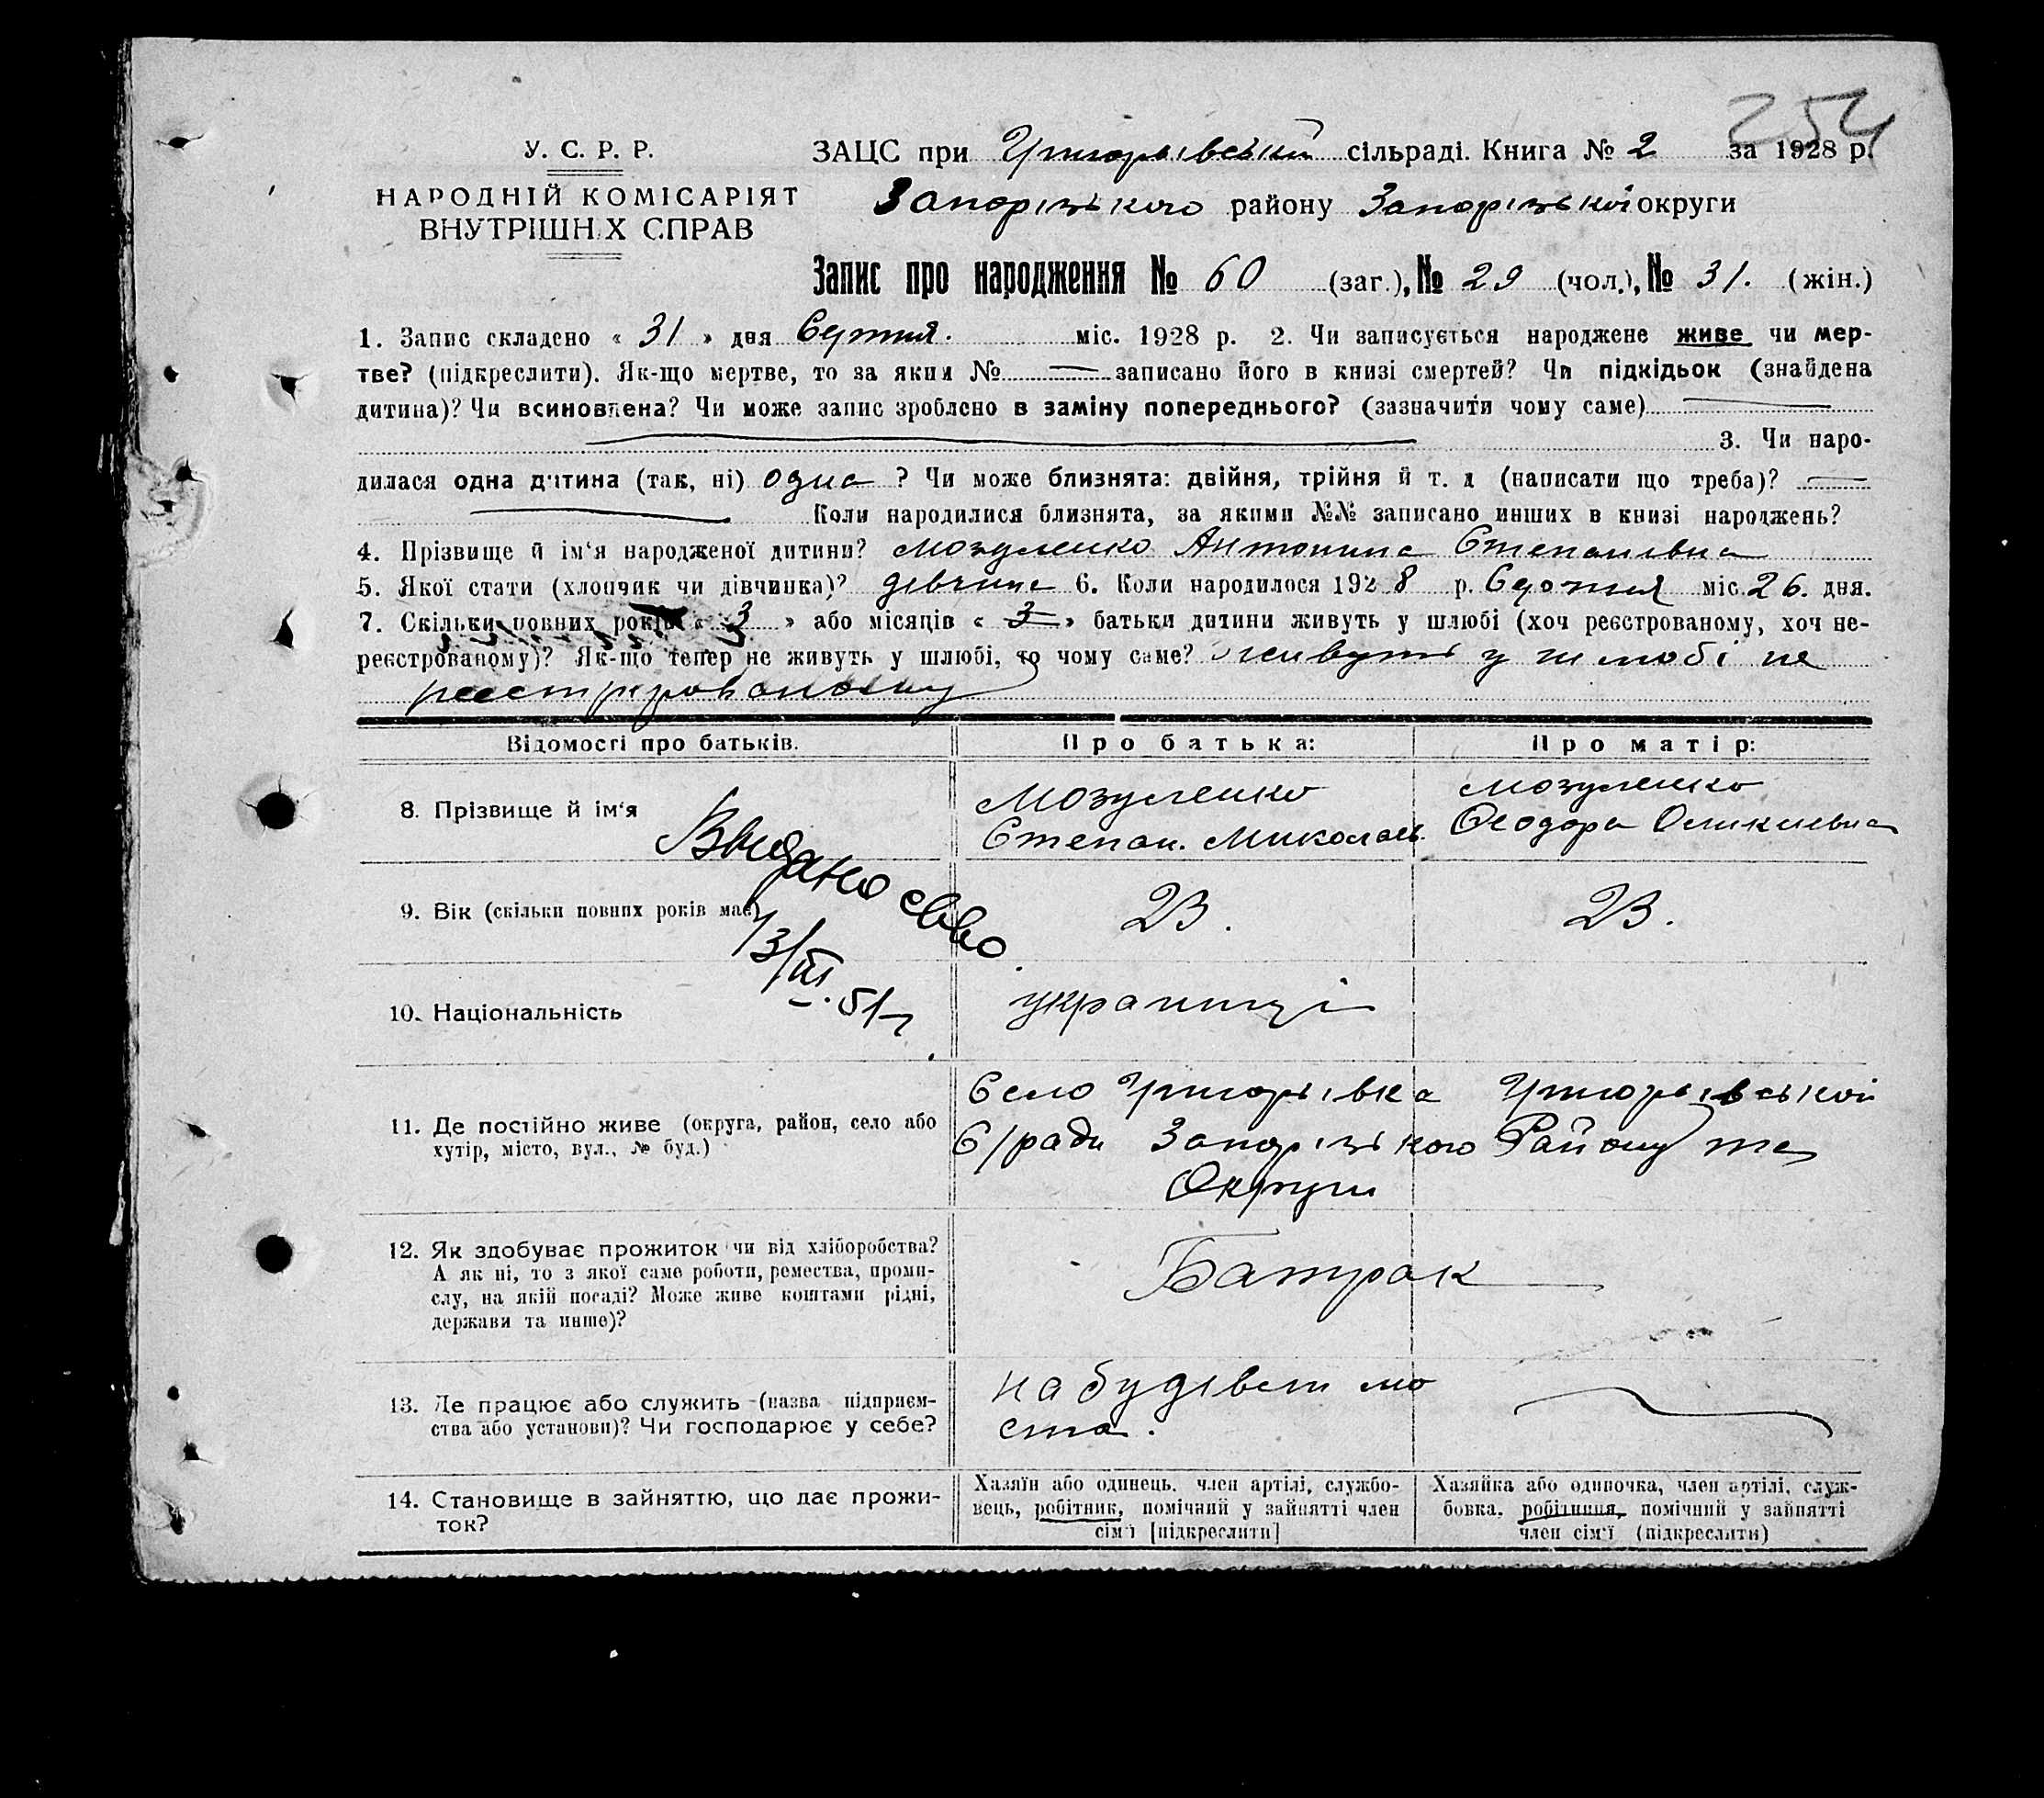 254
У. С. Р. Р.
НАРОДНІЙ КОМІСАРІЯТ
ВНУТРІШНІХ СПРАВ
ЗАЦС при Григорьівській сільраді. Книга № 2 за 1928 р.
Запорізького району Запорізької округи
Запис про народження № 60 (заг.), № 29 (чол.), № 31. (жін.)
1. Запис складено « 31 » дня Серпня. міс. 1928 р. 2. Чи записується народжене живе чи мер-
тве? (підкреслити). Як-що мертве, то за яким № — записано його в книзі смертей? Чи підкідьок (знайдена
дитина)? Чи всиновлена? Чи може запис зроблено в заміну попереднього? (зазначити чому саме) —
— 3. Чи наро-
дилася одна дитина (так, ні) одна ? Чи може близнята: двійня, трійня й т. д (написати що треба)? —
— Коли народилися близнята, за якими №№ записано инших в книзі народжень?
4. Прізвище й ім‘я народженої дитини? Мозуленко Антонина Степанівна
5. Якої стати (хлопчик чи дівчинка)? дівчина 6. Коли народилося 1928 р. Серпня міс. 26. дня.
7. Скільки повних років « 3 » або місяців « 3 » батьки дитини живуть у шлюбі (хоч реєстрованому, хоч не-
реєстрованому)? Як-що тепер не живуть у шлюбі, то чому саме? живуть у шлюбі не
Відомості про батьків.
Про батька:
Про матір:
8. Прізвище й ім‘я
Мозуленко
Степан. Миколаев.
Мозуленко
Феодора
Выдано св-во
13/III. 51 г.
9. Вік (скільки повних років має)
23.
23.
10. Національність
украинці
11. Де постійно живе (округа, район, село або
хутір, місто, вул., № буд.)
Село Григорьівка Григорьівської
С/ради Запорізького Району та
Округи
12. Як здобуває прожиток чи від хліборобства?
А як ні, то з якої саме роботи, ремества, проми-
слу, на якій посаді? Може живе коштами рідні,
держави та инше)?
Батрак
13. Де працює або служить (назва підприєм-
ства або установи)? Чи господарює у себе?
на будівет мо
ста.
14. Становище в зайняттю, що дає прожи-
ток?
Хазяїн або одинець, член артілі, службо-
вець, робітник, помічний у зайнятті член
сім‘ї [підкреслити]
Хазяйка або одиночка, член артілі, служ-
бовка, робітниця, помічний у зайнятті
член сім‘ї (підкреслити)